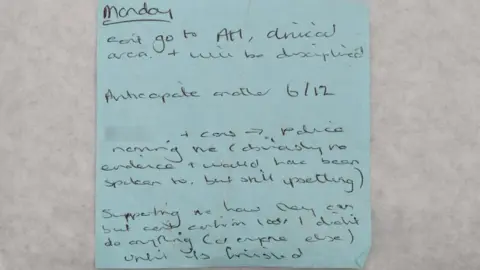 Monday
can't go to AH, clinical
area. + will be disciplined
Anticipate another 6/12
+ cons → police
naming me (obviously no
evidence + would have been
spoken to, but still upsetting)
Supporting me how they can
but can't confirm I didn't
do anything (or anyone else)
until its finished